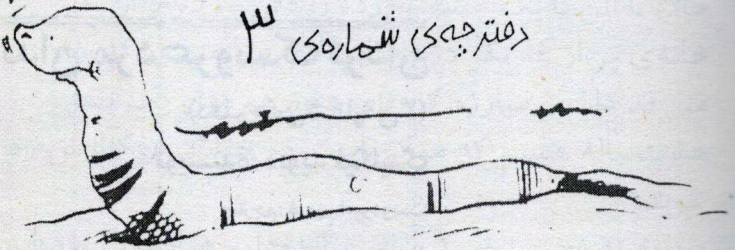 دفترچه‌ی شماره‌ی ۳